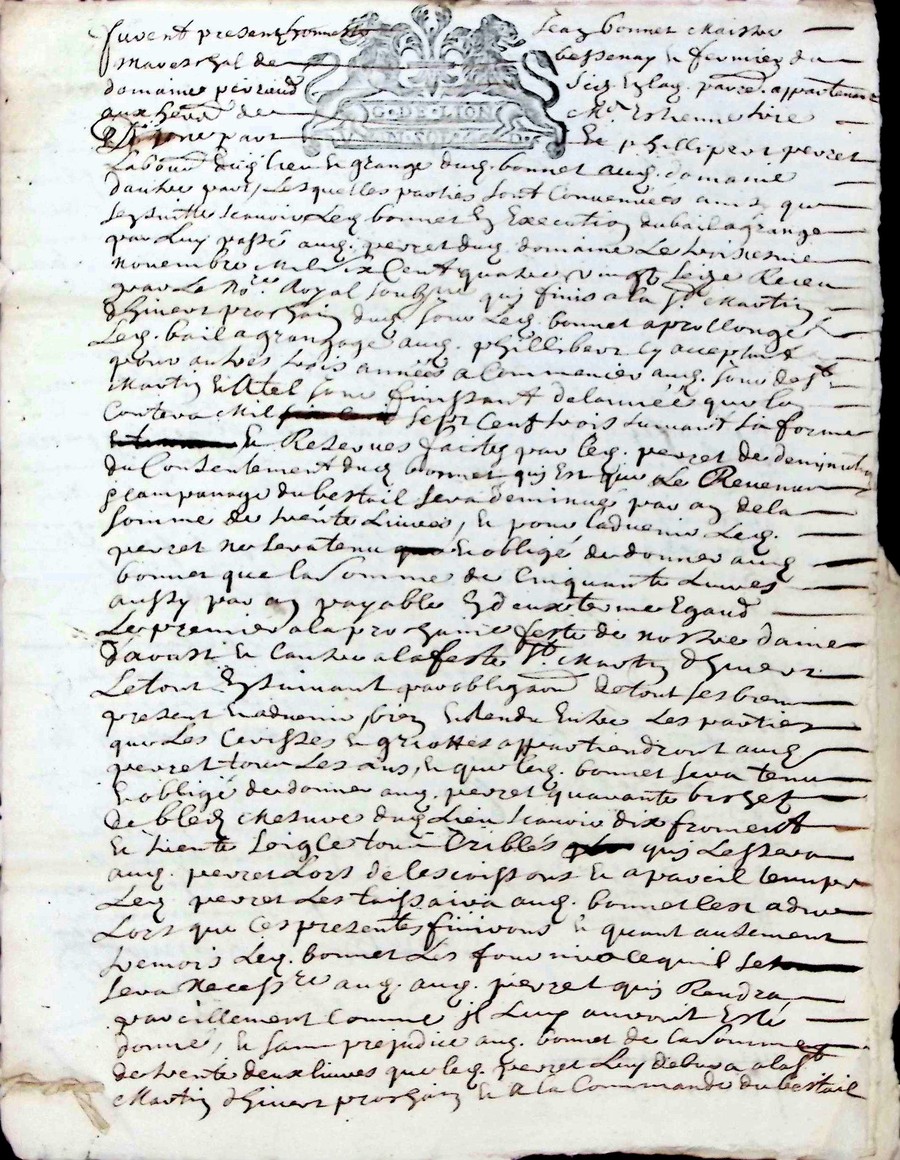 furent presens honneste Jean bonnet Maistre
Mareschal de bessenay et fermier du
domaine peyraud appartenant
aux de Mr Estienne
d'une part Et phillipert perret
Labour dug lieu Et granger dug. bonnet aug. domaine
dautre part, Lesquelles parties sont Convenues ainsy que
sensuit scavoir Leq bonnet En Execution du bail a grange
par Luy passé aug. perret dug domaine Le troisiesme
novembre Mil six Cent quatre vingt seize Receu
par Le Nore Royal soubsne quy finis a la St Martin
dhiver prochain dug jour Leq. bonnet a prollongé
Leq. bail a grangage aug. phillibert cy acceptant
pour autres trois années a Commencer aug. jour de St
Martin Et a tel jour finissant de lannée que lon
Contera Mil sept Cent trois suivant La forme
Et Reserves faites par leq. perret de deminution
du Consentement dug bonnet quy Est que Le Revenu
du bestail sera deminué par an de la
somme de trente Livres, Et pour ladvenir Leq.
perret ne sera tenu Et obligé de donner aug
bonnet que la somme de Cinquante Livres
aussy par an payable En deux terme Egaud
Le premier a la prochaine feste de nostre dame
daoust Et lautre a la feste St Martin dhiver
Le tout Ensuivant par obligaon de tout ses bien
present Et advenir, bien Entendu Entre Les parties
que Les Cerisses Et griottes appartiendront aug
perret tous Les ans, Et que leq. bonnet sera tenu
Et obligé de donner aug. perret quarante bichet
de bled Mesure dug Lieu scavoir dix froment
Et trente soigle tout Criblés quy Lessera
aug. perret Lors de les moissons Et a pareil temps
Leq perret Les laissaira aug. bonnet
Lors que Ces presentes finirons Et quant au sement
tremois Leq. bonnet Les fournira ce quil
sera Necessre aug. aug. perret quy Rendra
pareillement Comme jl Luy auront Esté
donné, Et sans prejudice aug. bonnet de la somme
de trente deux livres que leq. perret Luy debvra a la St
Martin dhiver prochain Et A la Commande du bestail